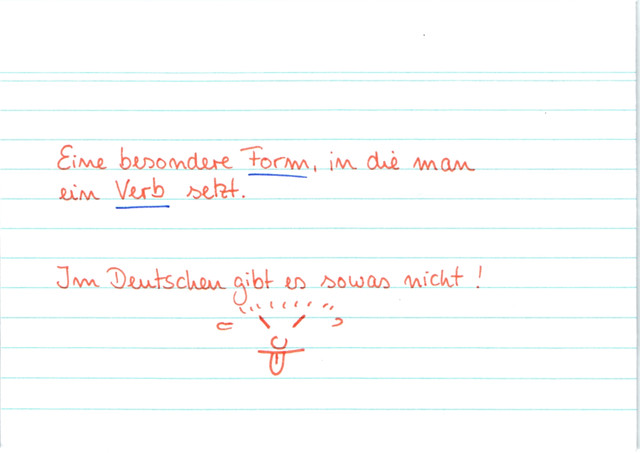 Eine besondere Form, in die man
ein Verb setzt.
Im Deutschen gibt es sowas nicht!